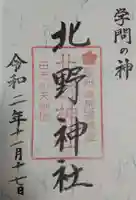 学問の神
北野神社
令和二年十一月十七日